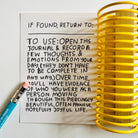 IF FOUND, RETURN TO:
TO USE: OPEN THIS
JOURNAL & RECORD A
FEW THOUGHTS &
EMOTIONS FROM YOUR
DAY (THEY DON'T HAVE
TO BE COMPLETE IN
ANY WAY). OVER TIME,
YOU'LL HAVE EVIDENCE
OF WHO YOU WERE AS A
PERSON MOVING
THROUGH THIS PERILOUS,
BEAUTIFUL, OFTEN PAINFUL,
HOPEFULLY JOYFUL LIFE.